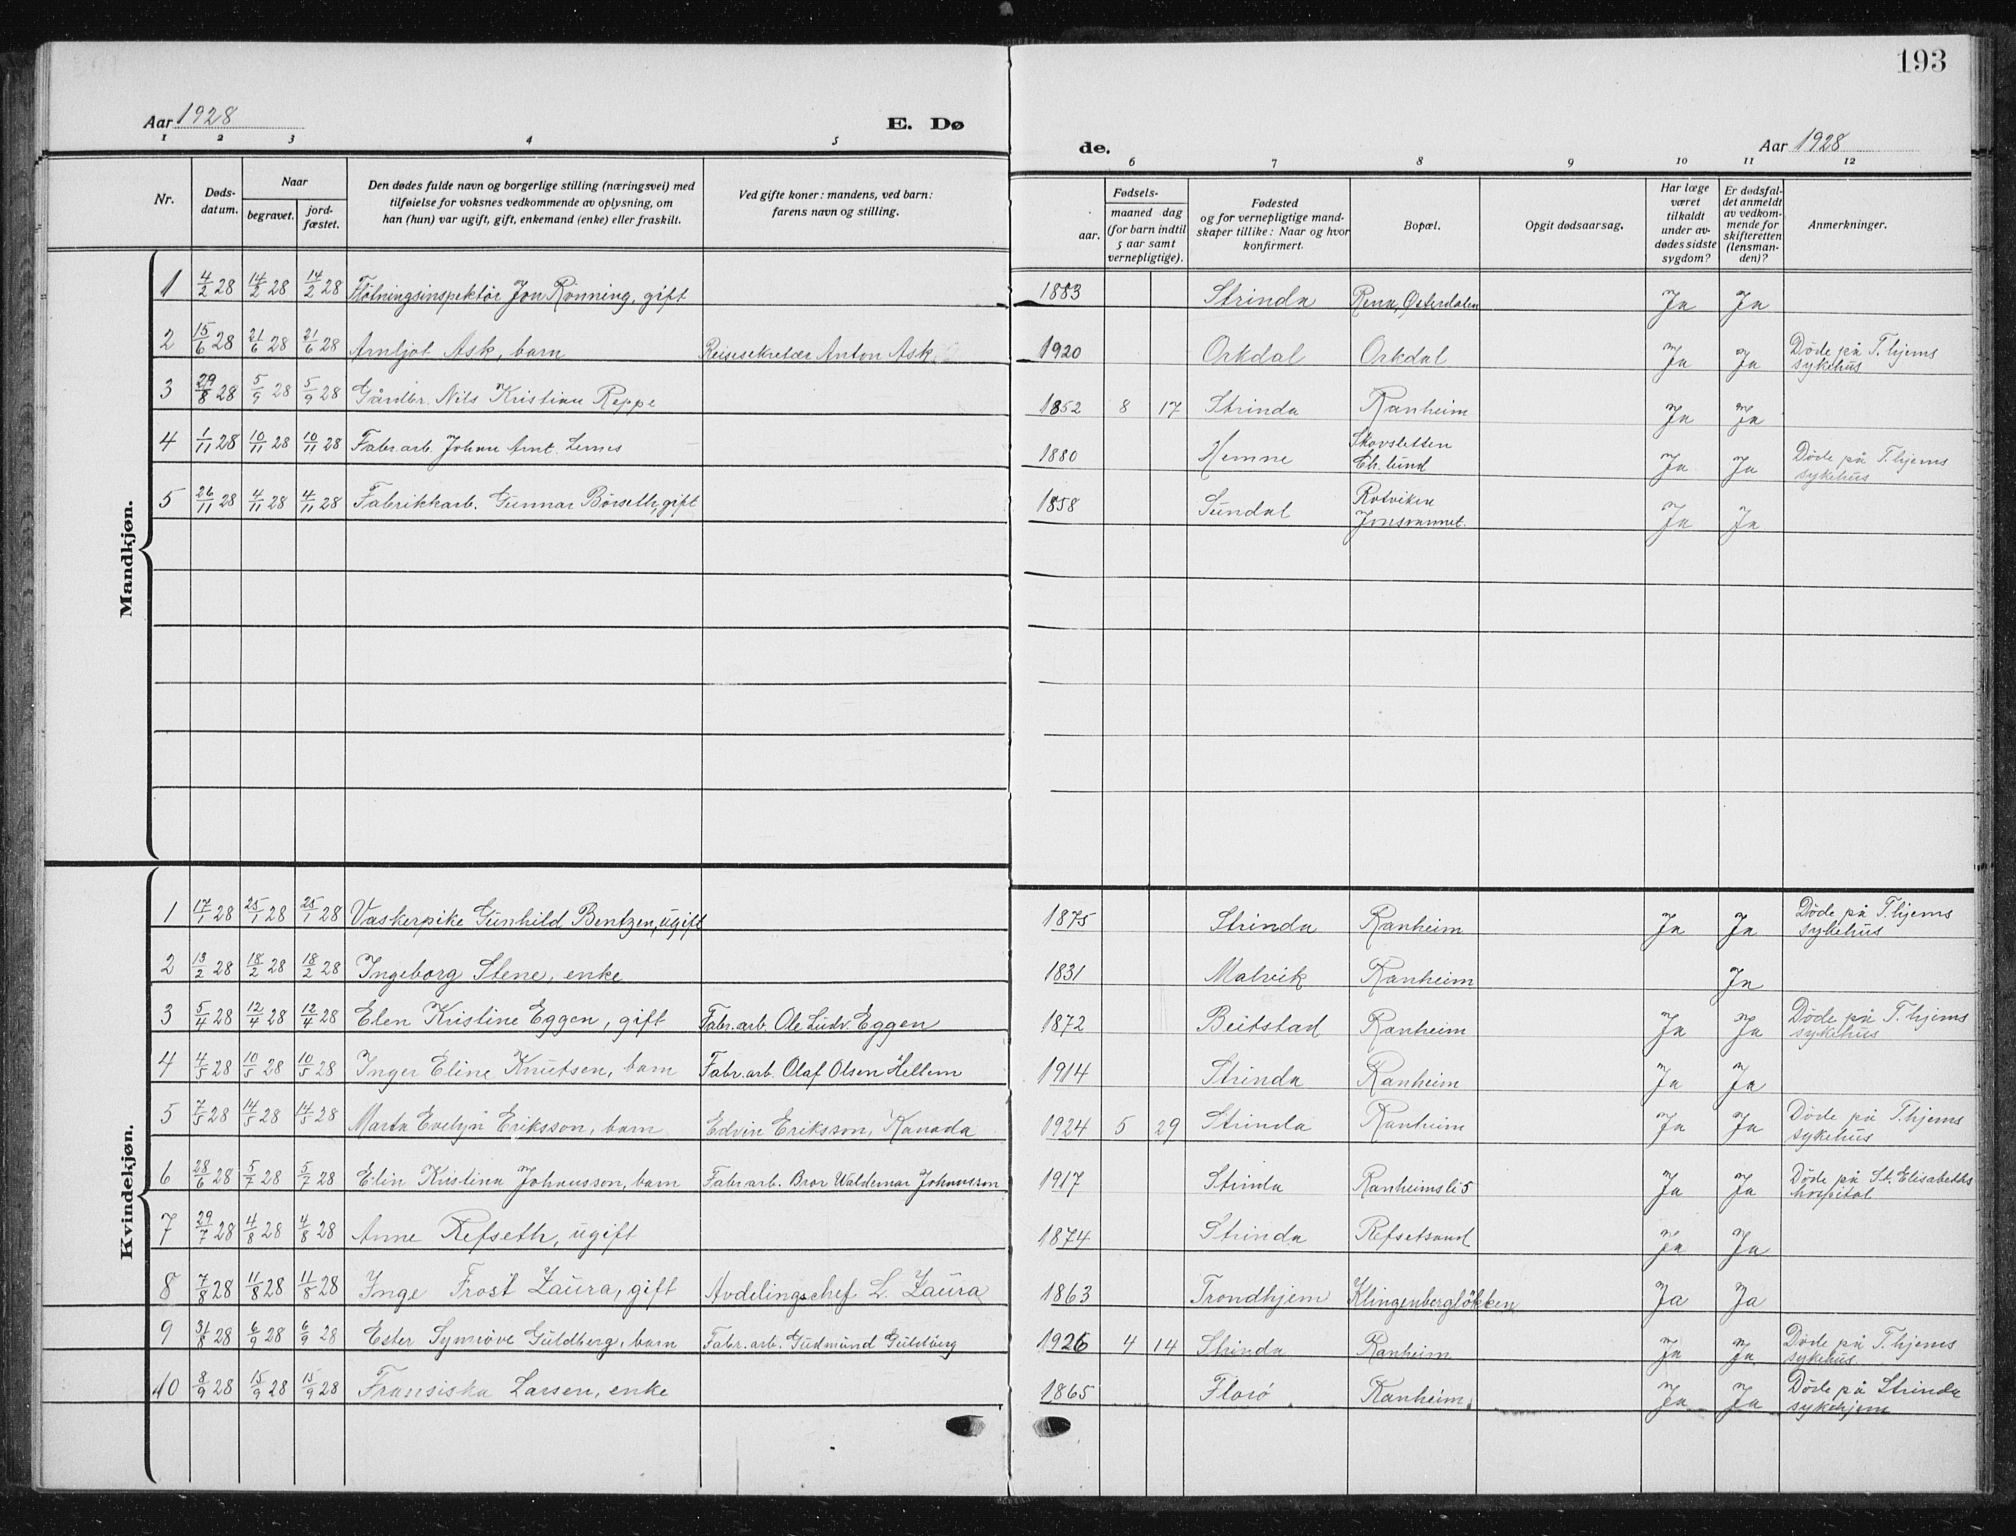 193
Aar 1928
E. Dø
de.
Aar 1928
1 2 3 4 5
6 7 8 9 10 11 12
Nr.
Døds-
datum.
Naar
begravet.
jord-
fæstet.
Den dødes fulde navn og borgerlige stilling (næringsvei) med
tilføielse for voksnes vedkommende av oplysning, om
han (hun) var ugift, gift, enkemand (enke) eller fraskilt.
Ved gifte koner: mandens, ved barn:
farens navn og stilling.
Fødsels-
aar.
maaned dag
(for barn indtil
5 aar samt
vernepligtige).
Fødested
og for vernepligtige mand-
skaper tillike: Naar og hvor
konfirmert.
Bopæl.
Opgit dødsaarsag.
Har læge
været
tilkaldt
under av-
dødes sidste
sygdom?
Er dødsfal-
det anmeldt
av vedkom-
mende for
skifteretten
(lensman-
den)?
Anmerkninger.
Mandkjøn.
1 4/2 28 14/2 28 14/2 28 Fløtningsinspektør Jon Rønning, gift 1883 Strinda Rena, Østerdalen Ja Ja
2 15/6 28 21/6 28 21/6 28 Arnljot Ask, barn Reisesekretær Anton Ask 1920 Orkdal Orkdal Ja Ja Døde på T.hjems
sykehus
3 29/8 28 5/9 28 5/9 28 Gårdbr. Nils Kristian Reppe 1852 8 17 Strinda Ranheim Ja Ja
4 1/11 28 10/11 28 10/11 28 Fabr.arb. Johan Arnt Lernes 1880 Hemne Skovsletten
Ch.lund Ja Ja Døde på T.hjems
sykehus
5 26/11 28 4/11 28 4/11 28 Fabrikkarb. Gunnar Børseth, gift 1858 Sundal Rotviken
Jonsvannet Ja Ja
Kvindekjøn.
1 17/1 28 25/1 28 25/1 28 Vaskerpike Gunhild Bentzen, ugift 1875 Strinda Ranheim Ja Ja Døde på T.hjems
sykehus
2 13/2 28 18/2 28 18/2 28 Ingeborg Stene, enke 1831 Malvik Ranheim Ja
3 5/4 28 12/4 28 12/4 28 Elen Kristine Eggen, gift Fabr.arb. Ole Ludv. Eggen 1872 Beitstad Ranheim Ja Ja Døde på T.hjems
sykehus
4 4/5 28 10/5 28 10/5 28 Inger Eline Knutsen, barn Fabr.arb. Olaf Olsen Hellem 1914 Strinda Ranheim Ja Ja
5 7/5 28 14/5 28 14/5 28 Marta Evelyn Eriksson, barn Edvin Eriksson, Kanada 1924 5 29 Strinda Ranheim Ja Ja Døde på T.hjems
sykehus
6 28/6 28 5/7 28 5/7 28 Elin Kristina Johansson, barn Fabr.arb. Bror Valdemar Johansson 1917 Strinda Ranheimsli 5 Ja Ja Døde på St. Elisabeths
hospital
7 29/7 28 4/8 28 4/8 28 Anne Refseth, ugift 1874 Strinda Refsetsand Ja Ja
8 7/8 28 11/8 28 11/8 28 Inge Frost Laura, gift Avdelingschef L. Laura 1863 Trondhjem Klingenbergløkken Ja Ja
9 31/8 28 6/9 28 6/9 28 Ester Synnøve Guldberg, barn Fabr.arb. Gudmund Guldberg 1926 4 14 Strinda Ranheim Ja Ja Døde på T.hjems
sykehus
10 8/9 28 15/9 28 15/9 28 Fransiska Larsen, enke 1865 Florø Ranheim Ja Ja Døde på Strinda
sykehjem